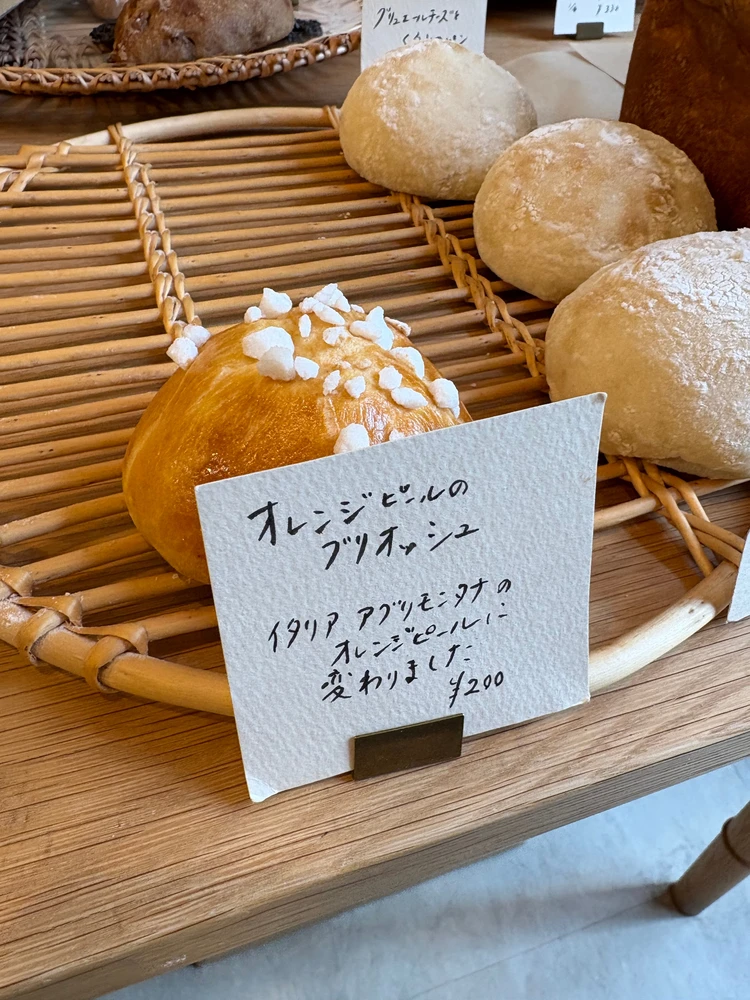 グリュエールチーズと
¥330
オレンジピールの
ブリオッシュ
イタリア アグリモンタナの
オレンジピールに
変わりました
¥200